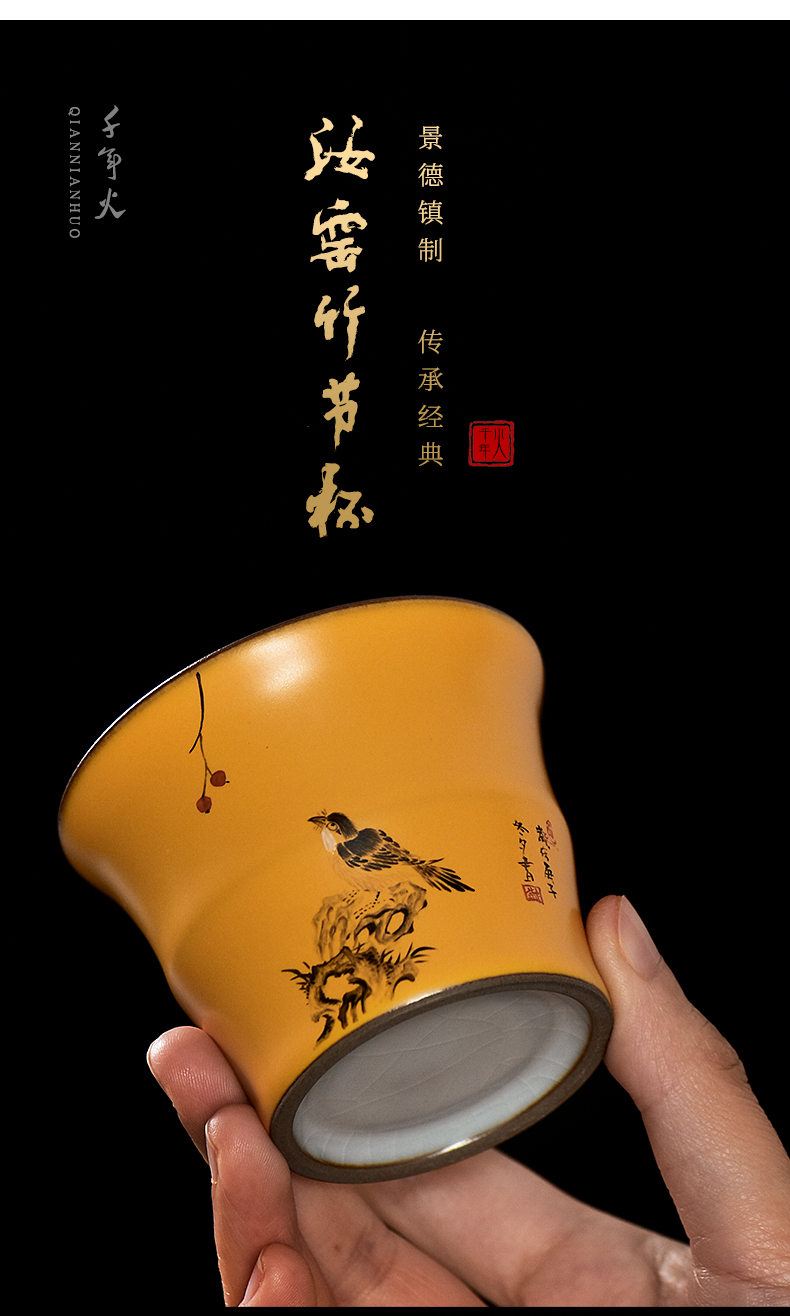 千年火
QIANNIANHUO
汝窑竹节杯
景德镇制 传承经典
千年火